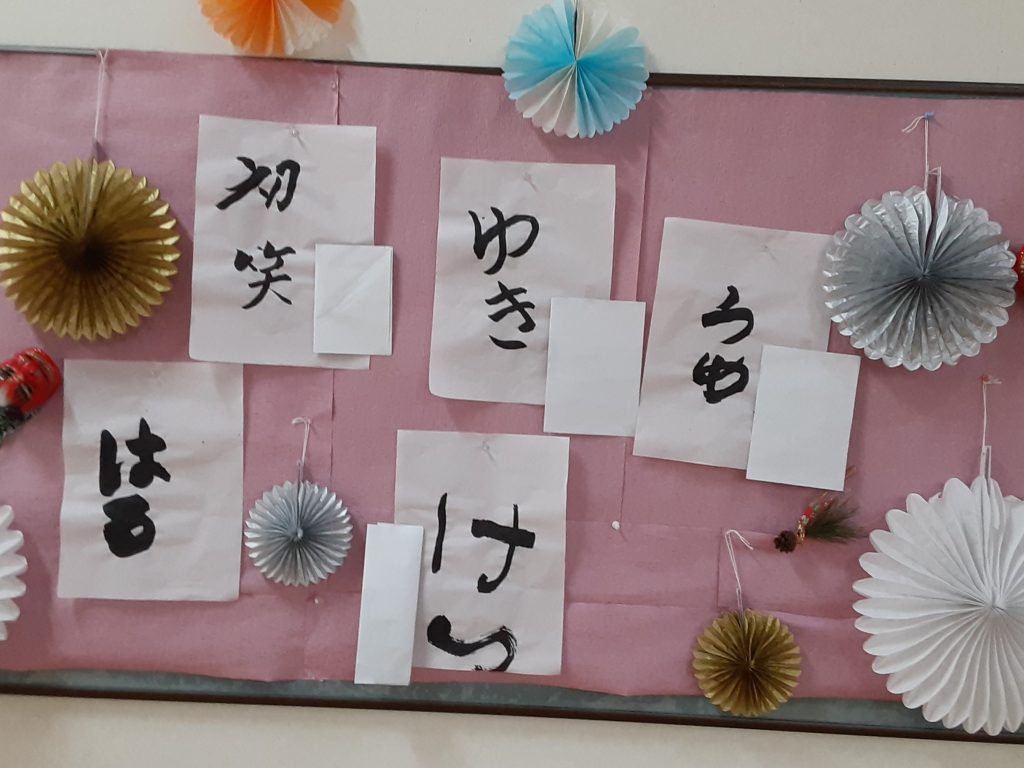 初笑
ゆき
うめ
はる